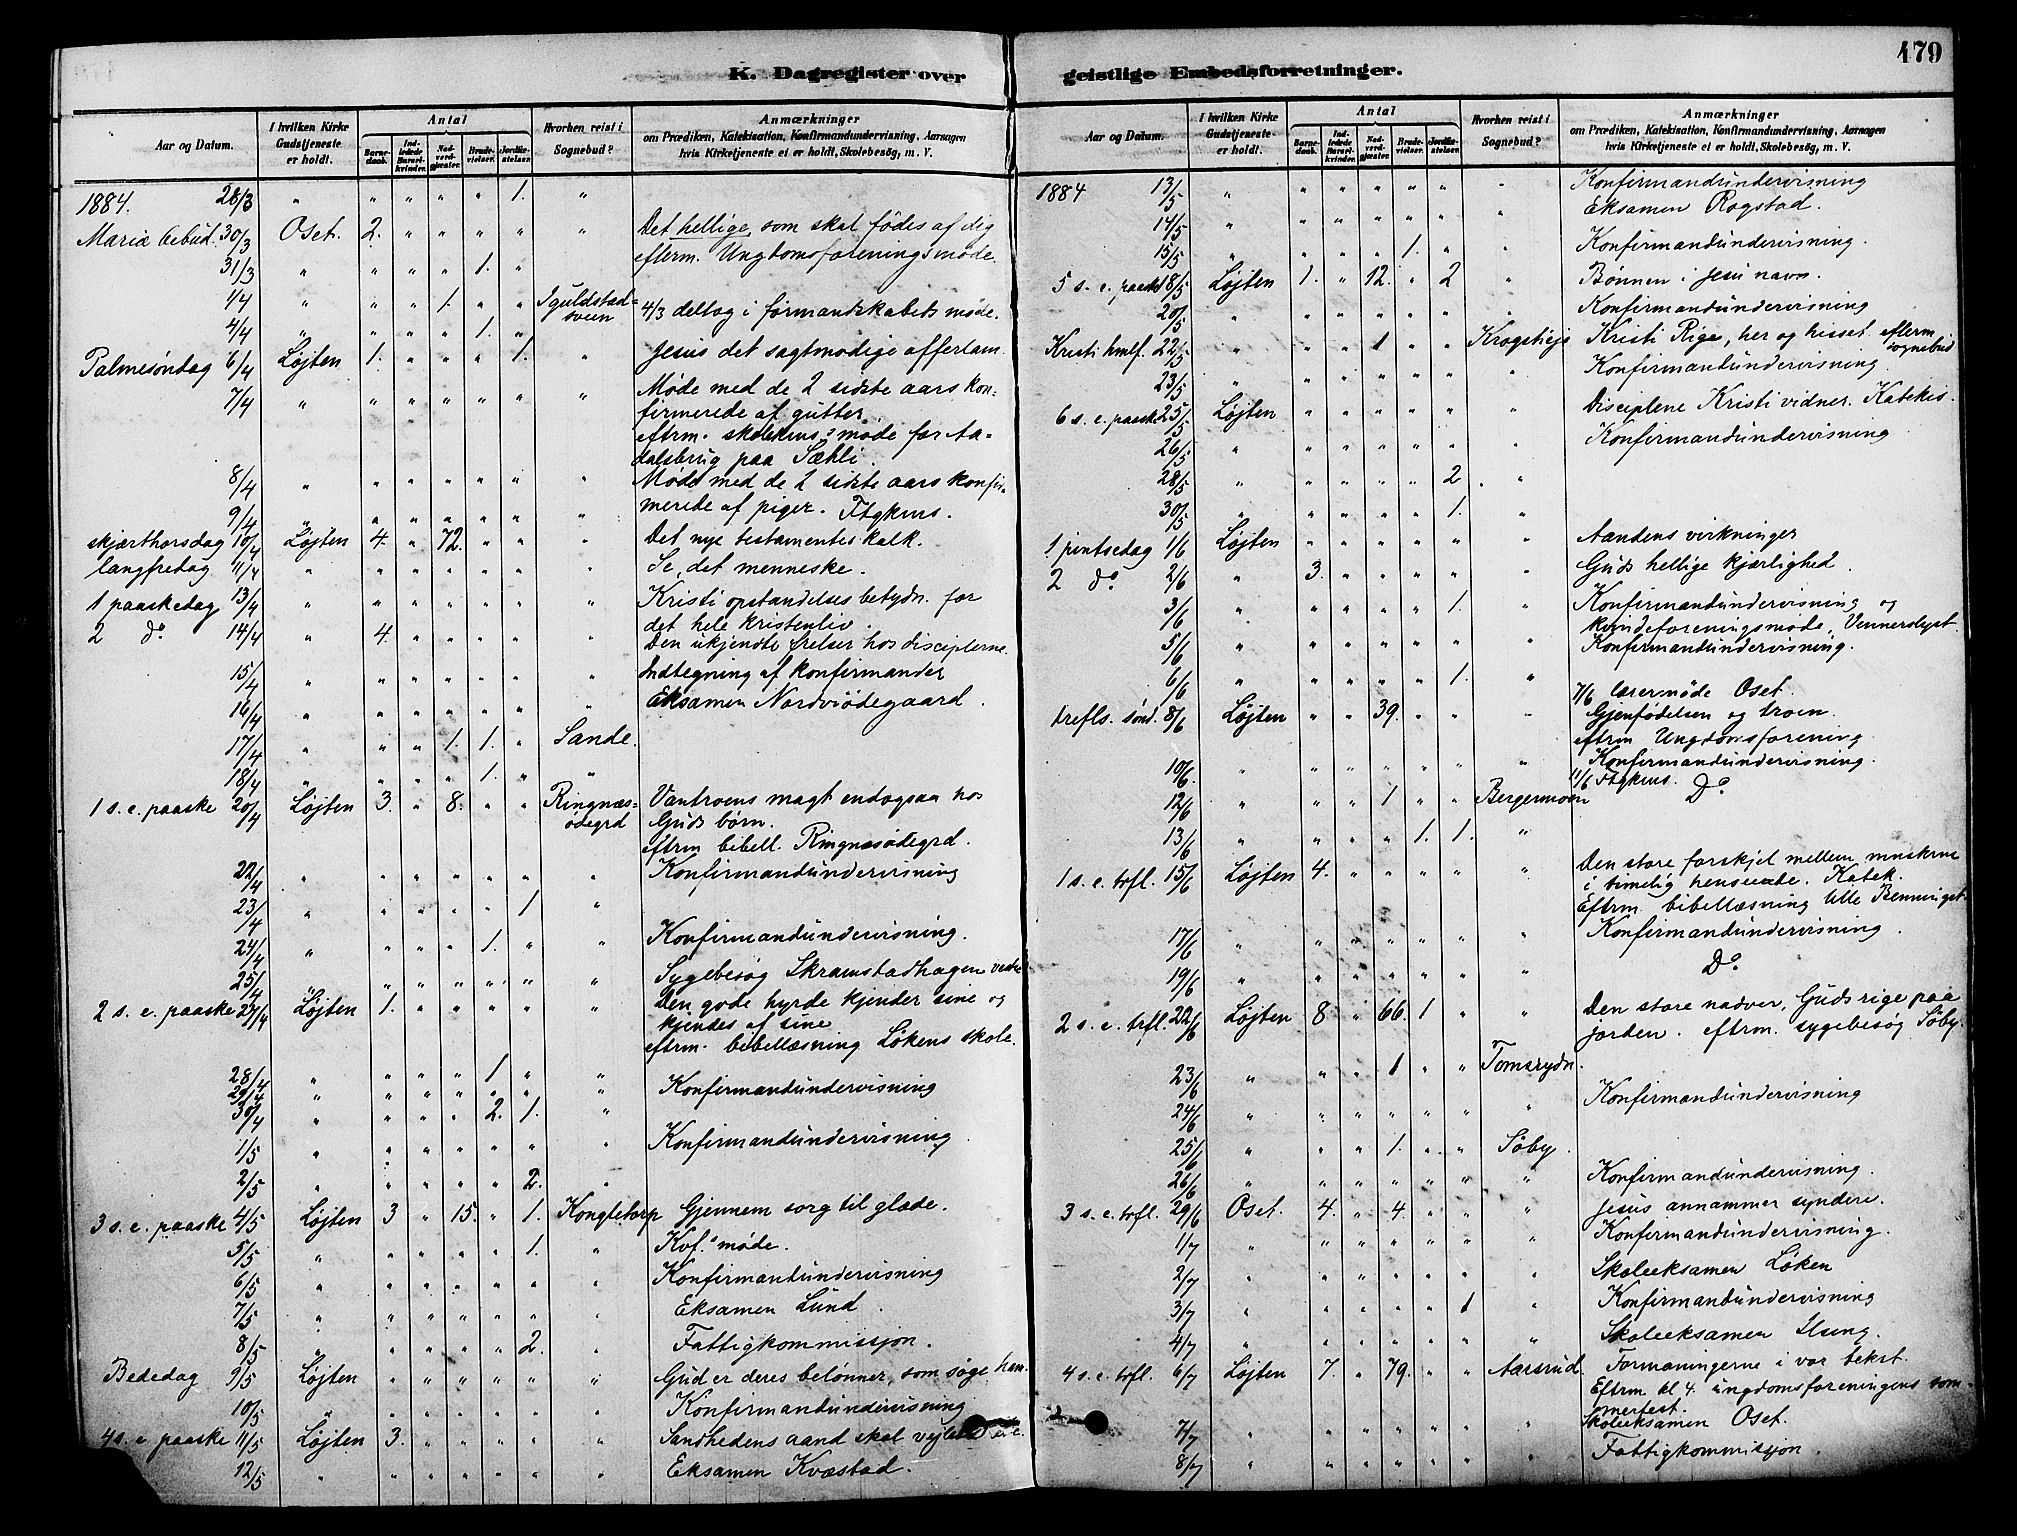 179
K. Dagregister over
Aar og Datum.
I hvilken Kirke Gudstjeneste er holdt.
Antal
Barne-daab.
Ind-ledede Barsel-kvinder.
Nad-verd-gjester.
Brude-vielser.
Jordfæ-stelser.
Hvorhen reist i Sognebud?
Anmærkninger
om Prædiken, Katekisation, Konfirmandundervisning, Aarsagen
hvis Kirketjeneste ei er holdt, Skolebesög, m. V.
1884. 28/3 " " " " " 1. "
Mariæ bebud. 30/3 Oset. 2. " " " " " Det hellige, som skal fødes af dig
31/3 " " " " 1. " efterm. Ungdomsforeningsmøde.
1/4 " " " 1. " "
4/3 deltog i formandskabets møde.
4/4 " " " " 1. " "
Palmesøndag 6/4 Løjten 1. " " " 1. " Jesus det sagtmodige offerlam
7/4 " " " " " " " Møde med de 2 sidste aars kon=
firmerede af gutter.
eftrm. skolekms. møde for Aa=
dalsbrug paa Sæhli.
8/4 " " " " " " " Møde med de 2 sidste aars konfir=
merede af piger. Ftgkms.
9/4 " " " " " " "
skjærthorsdag 10/4 Løjten 4. " 72. " " " Det nye testamentes kalk.
langfredag 11/4 " " " " " " " Se, det menneske.
1 paaskedag 13/4 " " " " " " " Kristi opstandelses betydn. for
det hele kristenliv.
2 do 14/4 " 4. " " " " " Den ukjendte frelser hos disciplerne.
15/4 " " " " " " " Indtegning af konfirmander
16/4 " " " " " " " Eksamen Nordviødegaard.
17/4 " " " 1. 1. " Sande.
18/4 " " " " 1. " "
1 s. e. paaske 20/4 Løjten 3. " 8. " " Ringnæs=
ødegrd Vantroens magt endogsaa hos
Guds børn.
eftrm bibell. Ringnæsødegrd.
22/4 " " " " " " " Konfirmandundervisning
23/4 " " " " " 1 "
24/4 " " " " 1. " " Konfirmandundervisning.
25/4 " " " " " " " Sygebesøg Skramstadhagen vestre
2 s. e. paaske 27/4 Løjten 1. " " " " " Den gode hyrde kjender sine og
kjendes af sine
eftrm. bibellæsning Løkens skole.
28/4 " " " " 1 " "
29/4 " " " " " " Konfirmandundervisning
30/4 " " " " 2. 1. "
1/5 " " " " " " " Konfirmandundervisning
2/5 " " " " " 2. "
3 s. e. paaske 4/5 Løjten 3 " 15. " 1. Kongletorp Gjennem sorg til glæde.
5/5 " " " " " 1. " Kvf. møde.
6/5 " " " " " " " Konfirmandundervisning
7/5 " " " " " " " Eksamen Lund.
8/5 " " " " " 2. " Fattigkommissjon.
Bededag 9/5 Løjten " " " " " " Gud er deres belønner, som søge ham.
10/5 " " " " " " " Konfirmandundervisning
4 s. e paaske 11/5 Løjten 3. " " " " " Sandhedens aand skal vejlede
12/5 " " " " " " " Eksamen Kvæstad.
geistlige Embedsforretninger.
Aar og Datum.
I hvilken Kirke Gudstjeneste er holdt.
Antal
Barne-daab.
Ind-ledede Barsel-kvinder.
Nad-verd-gjester.
Brude-vielser.
Jordfæ-stelser.
Hvorhen reist i Sognebud?
Anmærkninger
om Prædiken, Katekisation, Konfirmandundervisning, Aarsagen
hvis Kirketjeneste ei er holdt, Skolebesög, m. V.
1884 13/5 " " " " " " " Konfirmandundervisning
14/5 " " " " " " " Eksamen Rogstad.
15/5 " " " " 1. " " Konfirmandundervisning.
5 s. e. paaske 18/5 Løjten 1. " 12. " 2 " Bønnen i Jesu navn.
20/5 " " " " " " " Konfirmandundervisning
Kristi hmlf. 22/5 " " " 1 " " Kristi Rige, her og hisset eftrm
sognebud
23/5 " " " " " " " Konfirmandundervisning
6 s. e. paaske 25/5 Løjten " " " " " " Disciplene Kristi vidner. Katekis.
26/5 " " " " " " " Konfirmandundervisning
28/5 " " " " " 2 "
30/5 " " " " " 1. "
1 pintsedag 1/6 Løjten " " " " " " Aandens virkninger
2 do 2/6 " 3. " " " " " Guds hellige kjærlighed.
3/6 " " " " " 1. " Konfirmandundervisning og
kvindeforeningsmøde, Vennerslyst.
5/6 " " " " " " " Konfirmandundervisning.
6/6 " " " " " 1. "
7/6 lærermøde Oset.
trefls. sønd. 8/6 Løjten " " 39. " " " Gjenfødelsen og troen.
eftrm Ungdomsforening
10/6 " " " " " " " Konfirmandundervisning.
11/6 Ftgkms.
12/6 " " " 1 " " Bergermoen Do
13/6 " " " " 1. 1. "
1 s. e. trfl. 15/6 Løjten 4. " " " " " Den store forskjel mellem mnskene
i timelig henseende. Katek.
Eftrm. bibellæsning lille Benninget.
17/6 " " " " " " " Konfirmandundervisning.
19/6 " " " " " " " Do
2 s. e. trfl. 22/6 Løjten 8. " 66. 1 " " Den store nadver, Guds rige paa
jorden. eftrm. sygebesøg Søby.
23/6 " " " 1 " " Tomsrydn.
24/6 " " " " " " " Konfirmandundervisning
25/6 " " " 1. " " Søby.
26/6 " " " " " " " Konfirmandundervisning.
3 s. e. trfl. 29/6 Oset. 4. " 4. " " " Jesus annammer syndere.
1/7 " " " " " " " Konfirmandundervisning.
2/7 " " " " " " " Skoleeksamen Løken
3/7 " " " " " 1 " Konfirmandundervisning
4/7 " " " " " " " Skoleeksamen Ilseng.
4 s. e. trfl. 6/7 Løjten 7. " 79. " " Aarsrud. Formaningerne i vor tekst.
Eftrm kl 4. ungdomsforeningens som=
merfest.
7/7 " " " " " " " Skoleeksamen Oset.
8/7 " " " " " " " Fattigkommissjon.